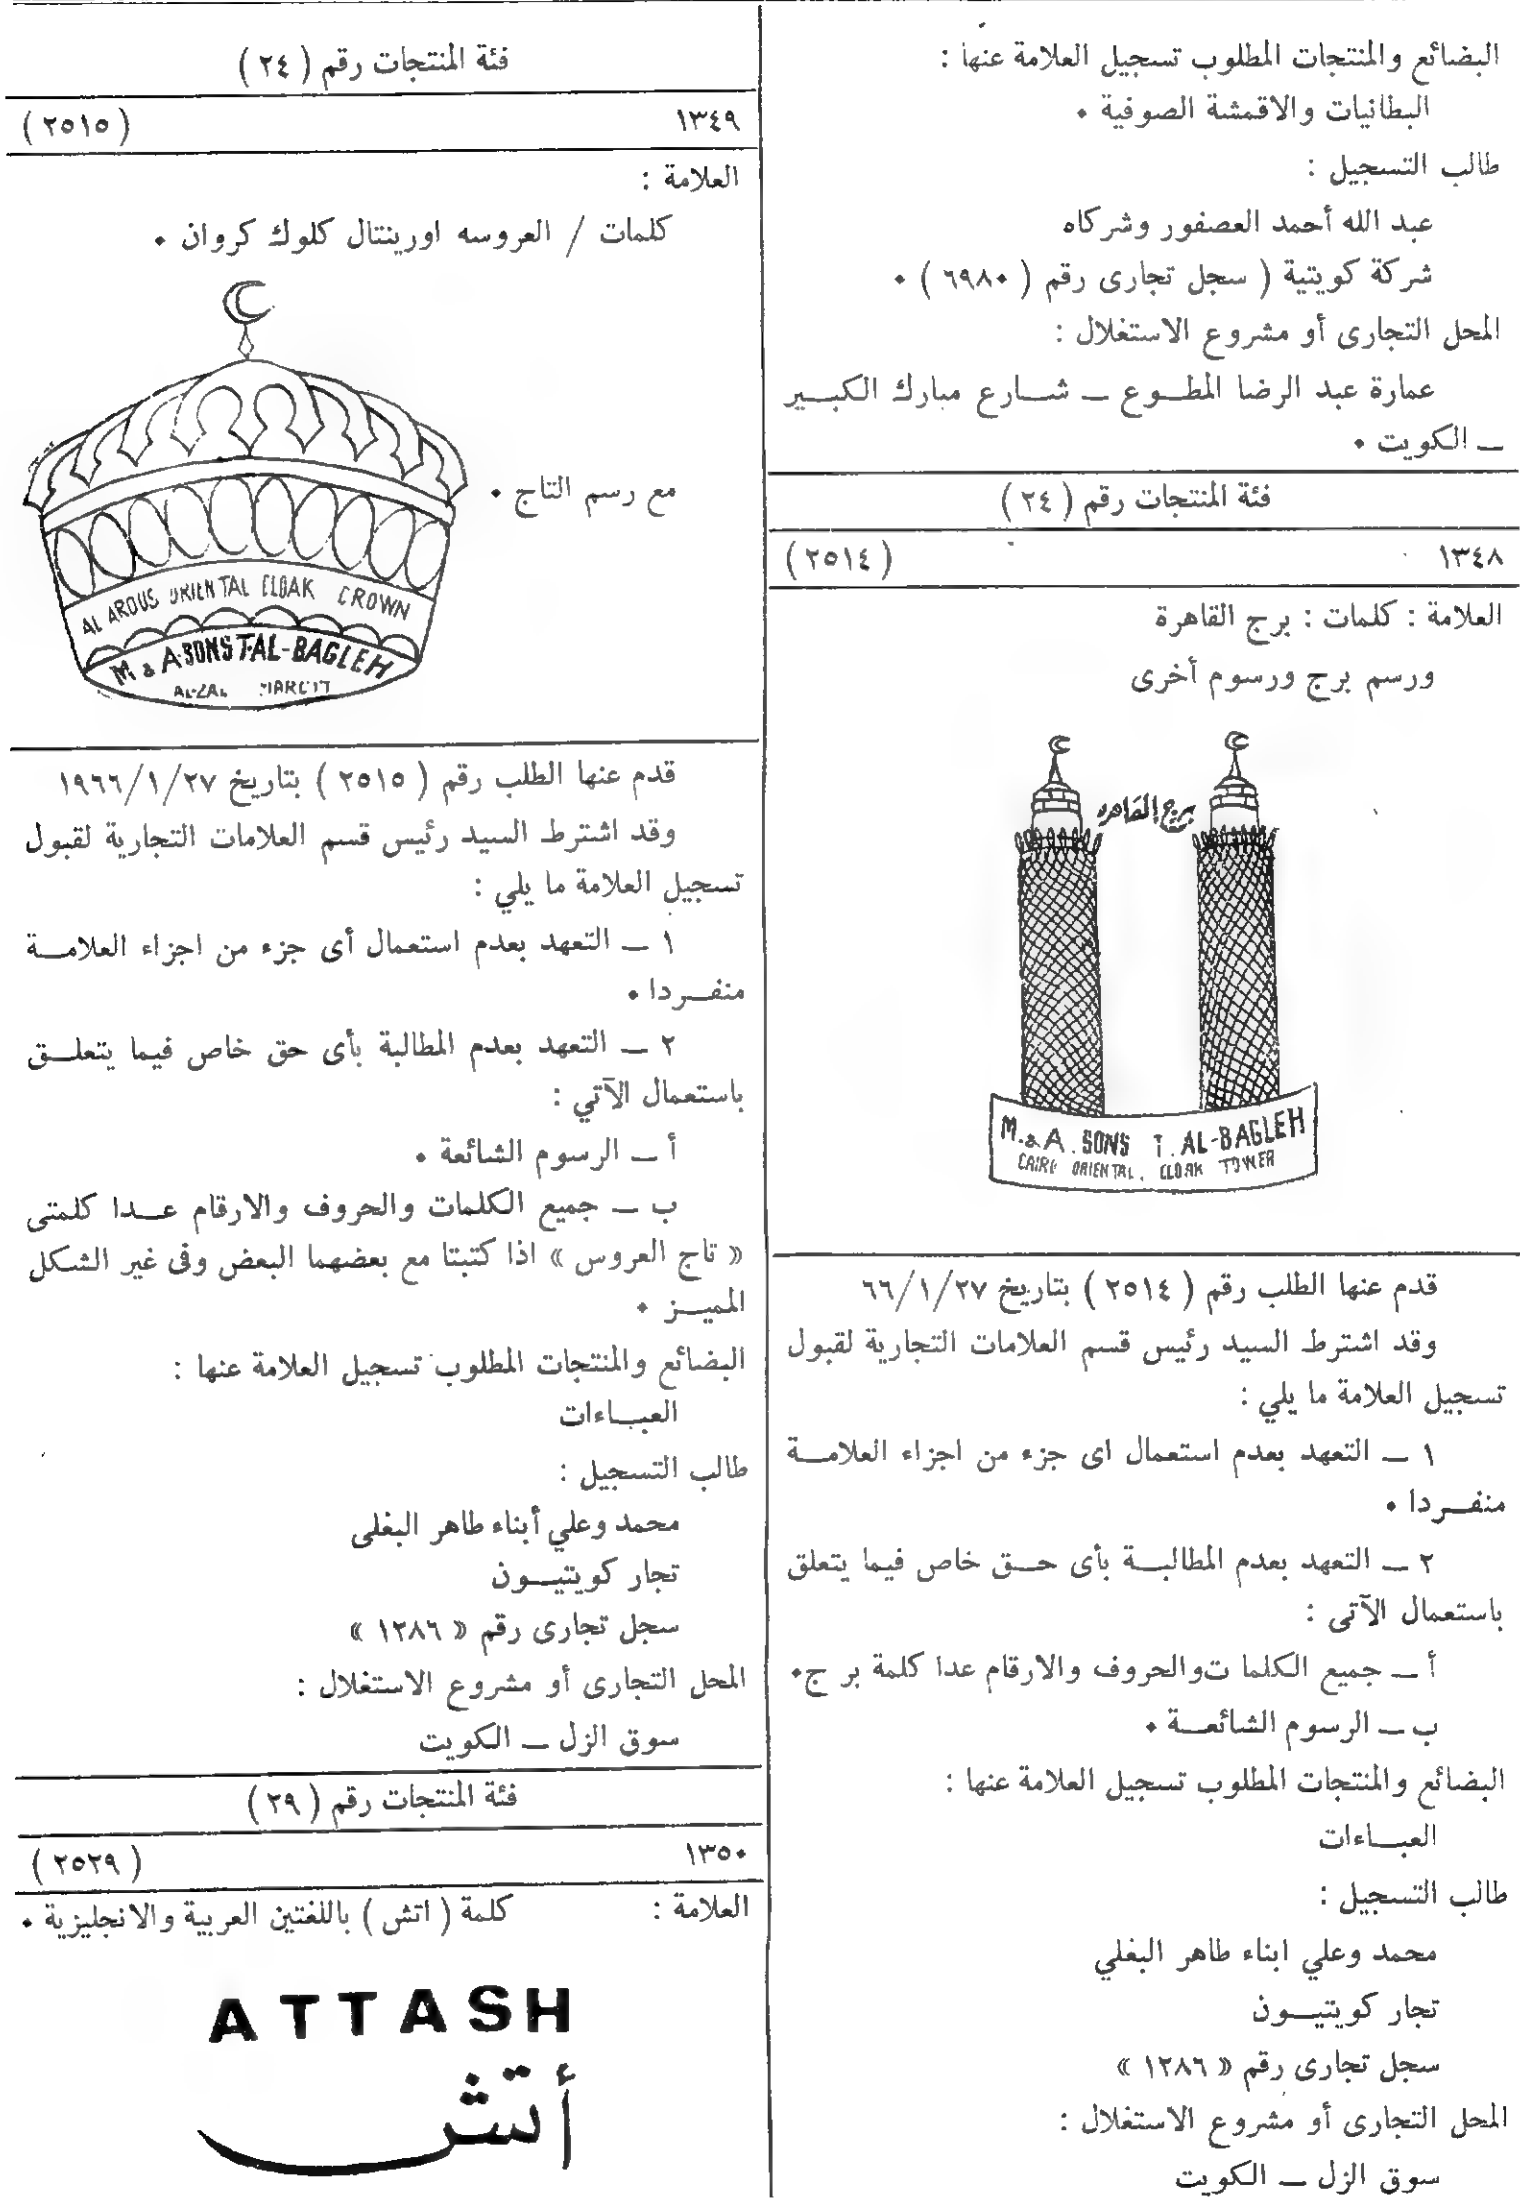 البضائع والمنتجات المطلوب تسجيل العلامة عنها :
البطانيات والاقمشة الصوفية ٠
طالب التسجيل :
عبد الله أحمد العصفور وشركاه
شركة كويتية ( سجل تجارى رقم ( ٦٩٨٠ ) ٠
المحل التجارى أو مشروع الاستغلال :
عمارة عبد الرضا المطـوع ــ شـارع مبارك الكبـير
ــ الكويت ٠
فئة المنتجات رقم ( ٢٤ )
١٣٤٨ ( ٢٥١٤ )
العلامة : كلمات : برج القاهرة
ورسم برج ورسوم أخرى
برج القاهره
M. & A. SONS T. AL-BAGLEH
CAIRO ORIENTAL. CLOAK TOWER
قدم عنها الطلب رقم ( ٢٥١٤ ) بتاريخ ٦٦/١/٢٧
وقد اشترط السيد رئيس قسم العلامات التجارية لقبول
تسجيل العلامة ما يلي :
١ ــ التعهد بعدم استعمال اى جزء من اجزاء العلامـة
منفـردا ٠
٢ ــ التعهد بعدم المطالبـة بأى حـق خاص فيما يتعلق
باستعمال الآتى :
أ ــ جميع الكلما توالحروف والارقام عدا كلمة بر ج٠
ب ــ الرسوم الشائعـة ٠
البضائع والمنتجات المطلوب تسجيل العلامة عنها :
العبـاءات
طالب التسجيل :
محمد وعلي ابناء طاهر البغلي
تجار كويتيـون
سجل تجارى رقم « ١٢٨٦ »
المحل التجارى أو مشروع الاستغلال :
سوق الزل ــ الكويت
فئة المنتجات رقم ( ٢٤ )
١٣٤٩ ( ٢٥١٥ )
العلامة :
كلمات / العروسه اورينتال كلوك كروان ٠
مع رسم التاج ٠
AL AROUS ORIENTAL CLOAK CROWN
M. & A. SONS T. AL-BAGLEH
AL-ZAL
قدم عنها الطلب رقم ( ٢٥١٥ ) بتاريخ ١٩٦٦/١/٢٧
وقد اشترط السيد رئيس قسم العلامات التجارية لقبول
تسجيل العلامة ما يلي :
١ ــ التعهد بعدم استعمال أى جزء من اجزاء العلامـة
منفـردا ٠
٢ ــ التعهد بعدم المطالبة بأى حق خاص فيما يتعلـق
باستعمال الآتي :
أ ــ الرسوم الشائعة ٠
ب ــ جميع الكلمات والحروف والارقام عـدا كلمتى
« تاج العروس » اذا كتبتا مع بعضهما البعض وفى غير الشكل
المميـز ٠
البضائع والمنتجات المطلوب تسجيل العلامة عنها :
العبـاءات
طالب التسجيل :
محمد وعلي أبناء طاهر البغلى
تجار كويتيـون
سجل تجارى رقم « ١٢٨٦ »
المحل التجارى أو مشروع الاستغلال :
سوق الزل ــ الكويت
فئة المنتجات رقم ( ٢٩ )
١٣٥٠ ( ٢٥٢٩ )
العلامة : كلمة ( اتش ) باللغتين العربية والانجليزية ٠
ATTASH
أتش